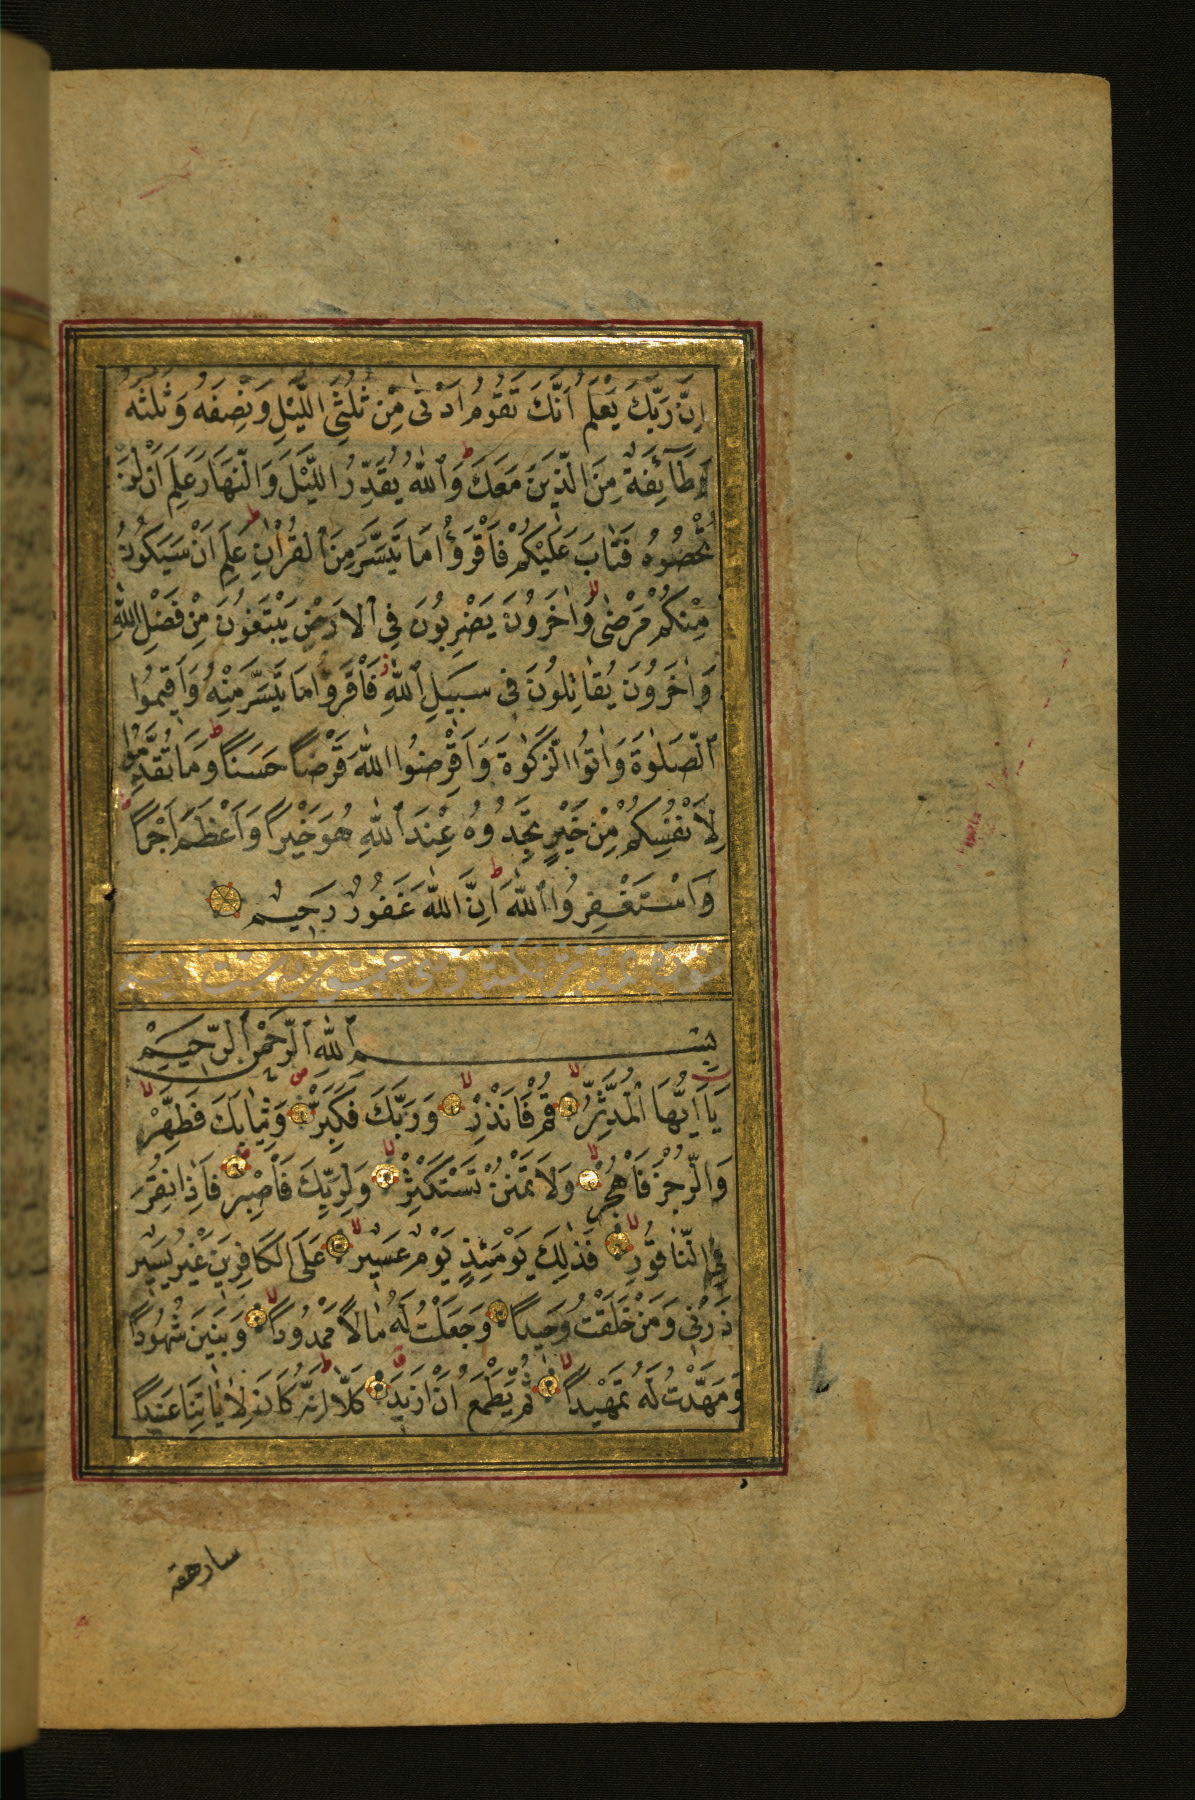 اِنَّ رَبَّكَ يَعْلَمُ اَنَّكَ تَقُومُ اَدْنٰى مِنْ ثُلُثَيِ الَّيْلِ وَنِصْفَهُ وَثُلُثَهُ
وَطَآئِفَةٌ مِنَ الَّذِينَ مَعَكَ وَٱللّٰهُ يُقَدِّرُ الَّيْلَ وَالنَّهَارَ عَلِمَ اَنْ لَنْ
تُحْصُوهُ فَتَابَ عَلَيْكُمْ فَاقْرَؤُا مَا تَيَسَّرَ مِنَ ٱلْقُرْاٰنِ عَلِمَ اَنْ سَيَكُونُ
مِنْكُمْ مَرْضٰى وَاٰخَرُونَ يَضْرِبُونَ فِي ٱلْاَرْضِ يَبْتَغُونَ مِنْ فَضْلِ اللّٰهِ
وَاٰخَرُونَ يُقَاتِلُونَ فِي سَبِيلِ ٱللّٰهِ فَاقْرَؤُا مَا تَيَسَّرَ مِنْهُ وَاَقِيمُوا
ٱلصَّلٰوةَ وَاٰتُوا الزَّكٰوةَ وَاَقْرِضُوا اللّٰهَ قَرْضًا حَسَنًا وَمَا تُقَدِّمُوا
لِاَنْفُسِكُمْ مِنْ خَيْرٍ تَجِدُوهُ عِنْدَ ٱللّٰهِ هُوَ خَيْرًا وَاَعْظَمَ اَجْرًا
وَاسْتَغْفِرُوا ٱللّٰهَ اِنَّ اللّٰهَ غَفُورٌ رَحِيمٌ
سورة المدثر مكية وهي خمسون وست آية
بِسْمِ ٱللّٰهِ ٱلرَّحْمٰنِ ٱلرَّحِيمِ
يَآ اَيُّهَا ٱلْمُدَّثِّرُ قُمْ فَاَنْذِرْ وَرَبَّكَ فَكَبِّرْ وَثِيَابَكَ فَطَهِّرْ
وَالرُّجْزَ فَاهْجُرْ وَلَا تَمْنُنْ تَسْتَكْثِرُ وَلِرَبِّكَ فَاصْبِرْ فَاِذَا نُقِرَ
فِي النَّاقُورِ فَذٰلِكَ يَوْمَئِذٍ يَوْمٌ عَسِيرٌ عَلَى الْكَافِرِينَ غَيْرُ يَسِيرٍ
ذَرْنِي وَمَنْ خَلَقْتُ وَحِيدًا وَجَعَلْتُ لَهُ مَالًا مَمْدُودًا وَبَنِينَ شُهُودًا
وَمَهَّدْتُ لَهُ تَمْهِيدًا ثُمَّ يَطْمَعُ اَنْ اَزِيدَ كَلَّا اِنَّهُ كَانَ لِاٰيَاتِنَا عَنِيدًا
سارهقه